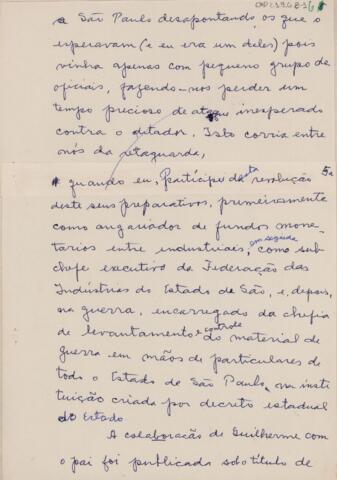 a São Paulo desapontando os que o
esperavam (e eu era um deles) pois
vinha apenas com pequeno grupo de
oficiais, fazendo-nos perder um
tempo precioso de ataque inesperado
contra o ditador. Isto corria entre
nós da retaguarda,
quando eu, Participei da revolução
deste seus preparativos, primeiramente
como angariador de fundos mone-
tarios entre industriais, em seguida como sub-
chefe executivo da Federação das
Indústrias do Estado de São, e, depois,
na guerra, encarregado da chefia
de levantamento e controle do material de
guerra em mãos de particulares de
todo o Estado de São Paulo, na insti
tuição criada por decreto estadual
do Estado
A colaboração de Guilherme com
o pai foi publicada sob o titulo de